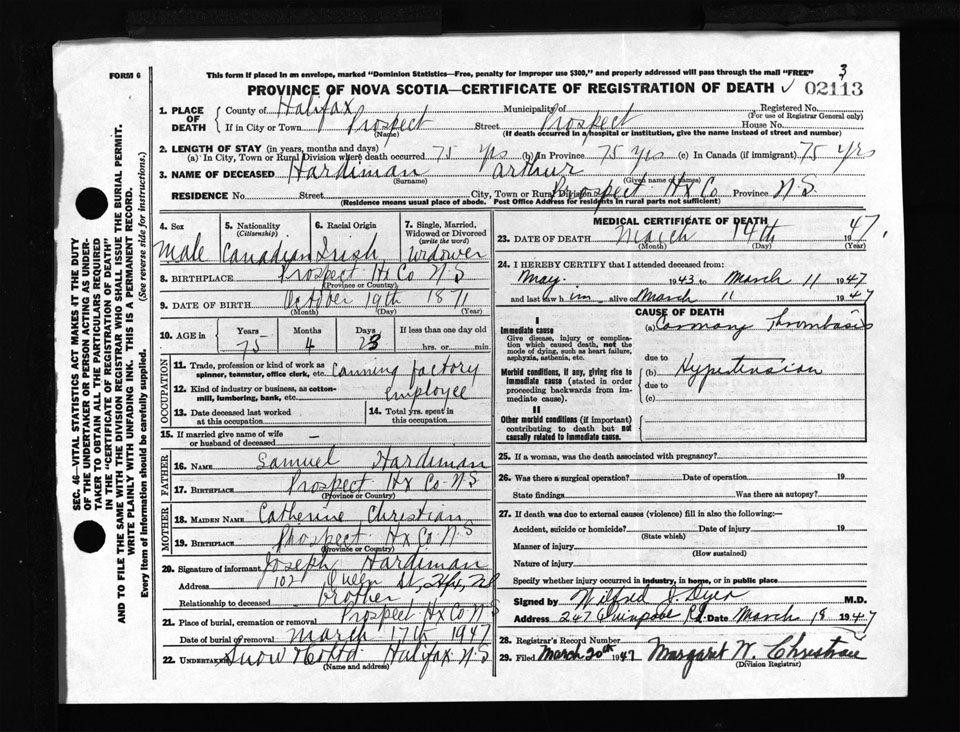 FORM 6
This form if placed in an envelope, marked "Dominion Statistics—Free, penalty for improper use $300," and properly addressed will pass through the mail "FREE"
3
PROVINCE OF NOVA SCOTIA—CERTIFICATE OF REGISTRATION OF DEATH 02113
1. PLACE OF DEATH
County of Halifax Municipality of Registered No.
(For use of Registrar General only)
If in City or Town Prospect Street Prospect House No.
(Name) (If death occurred in a hospital or institution, give the name instead of street and number)
2. LENGTH OF STAY (in years, months and days)
(a) In City, Town or Rural Division where death occurred 75 yrs (b) In Province 75 yrs (c) In Canada (if immigrant) 75 yrs
3. NAME OF DECEASED Hardiman Arthur
(Surname) (Given name or names)
RESIDENCE No. Street City, Town or Rural Division Prospect Hx Co Province N.S.
(Residence means usual place of abode. Post Office Address for residents in rural parts not sufficient)
4. Sex
Male
5. Nationality
(Citizenship)
Canadian
6. Racial Origin
Irish
7. Single, Married,
Widowed or Divorced
(write the word)
Widower
8. BIRTHPLACE Prospect Hx Co N.S
(Province or Country)
9. DATE OF BIRTH October 19th 1871
(Month) (Day) (Year)
10. AGE in
Years Months Days If less than one day old
75 4 23 hrs. or min.
OCCUPATION
11. Trade, profession or kind of work as
spinner, teamster, office clerk, etc. Canning factory
12. Kind of industry or business, as cotton-
mill, lumbering, bank, etc. employee
13. Date deceased last worked
at this occupation
14. Total yrs. spent in
this occupation
15. If married give name of wife
or husband of deceased —
FATHER
16. NAME Samuel Hardiman
17. BIRTHPLACE Prospect Hx Co N.S
(Province or Country)
MOTHER
18. MAIDEN NAME Catherine Christian
19. BIRTHPLACE Prospect Hx Co N S
(Province or Country)
20. Signature of informant Joseph Hardiman
Address 102 Queen St, Hfx,
Relationship to deceased brother
21. Place of burial, cremation or removal Prospect Hx Co N S
Date of burial or removal March 17th 1947
22. Undertaker Snow & Co Ltd Halifax N.S
(Name and address)
MEDICAL CERTIFICATE OF DEATH
23. DATE OF DEATH March 14th 1947.
(Month) (Day) (Year)
24. I HEREBY CERTIFY that I attended deceased from:
May 1943 to March 11 1947
and last saw him alive on March 11 1947
CAUSE OF DEATH
I
Immediate cause
Give disease, injury or complica-
tion which caused death, not the
mode of dying, such as heart failure,
asphyxia, asthenia, etc.
(a) Coronary Thrombosis
due to
Morbid conditions, if any, giving rise to
immediate cause (stated in order
proceeding backwards from im-
mediate cause).
(b) Hypertension
due to
(c)
II
Other morbid conditions (if important)
contributing to death but not
causally related to immediate cause.
25. If a woman, was the death associated with pregnancy?
26. Was there a surgical operation? Date of operation 19
State findings Was there an autopsy?
27. If death was due to external causes (violence) fill in also the following:—
Accident, suicide or homicide? Date of injury 19
(State which)
Manner of injury
(How sustained)
Nature of injury
Specify whether injury occurred in industry, in home, or in public place
Signed by Wilfred J Dyer M.D.
Address 247 Quinpool Rd. Date March 18 1947
28. Registrar's Record Number
29. Filed March 20th 1947 Margaret W. Christian
(Division Registrar)
SEC. 46—VITAL STATISTICS ACT MAKES IT THE DUTY
OF THE UNDERTAKER OR PERSON ACTING AS UNDER-
TAKER TO OBTAIN ALL THE PARTICULARS REQUIRED
IN THE "CERTIFICATE OF REGISTRATION OF DEATH"
AND TO FILE THE SAME WITH THE DIVISION REGISTRAR WHO SHALL ISSUE THE BURIAL PERMIT.
WRITE PLAINLY WITH UNFADING INK. THIS IS A PERMANENT RECORD.
Every item of Information should be carefully supplied. (See reverse side for instructions.)